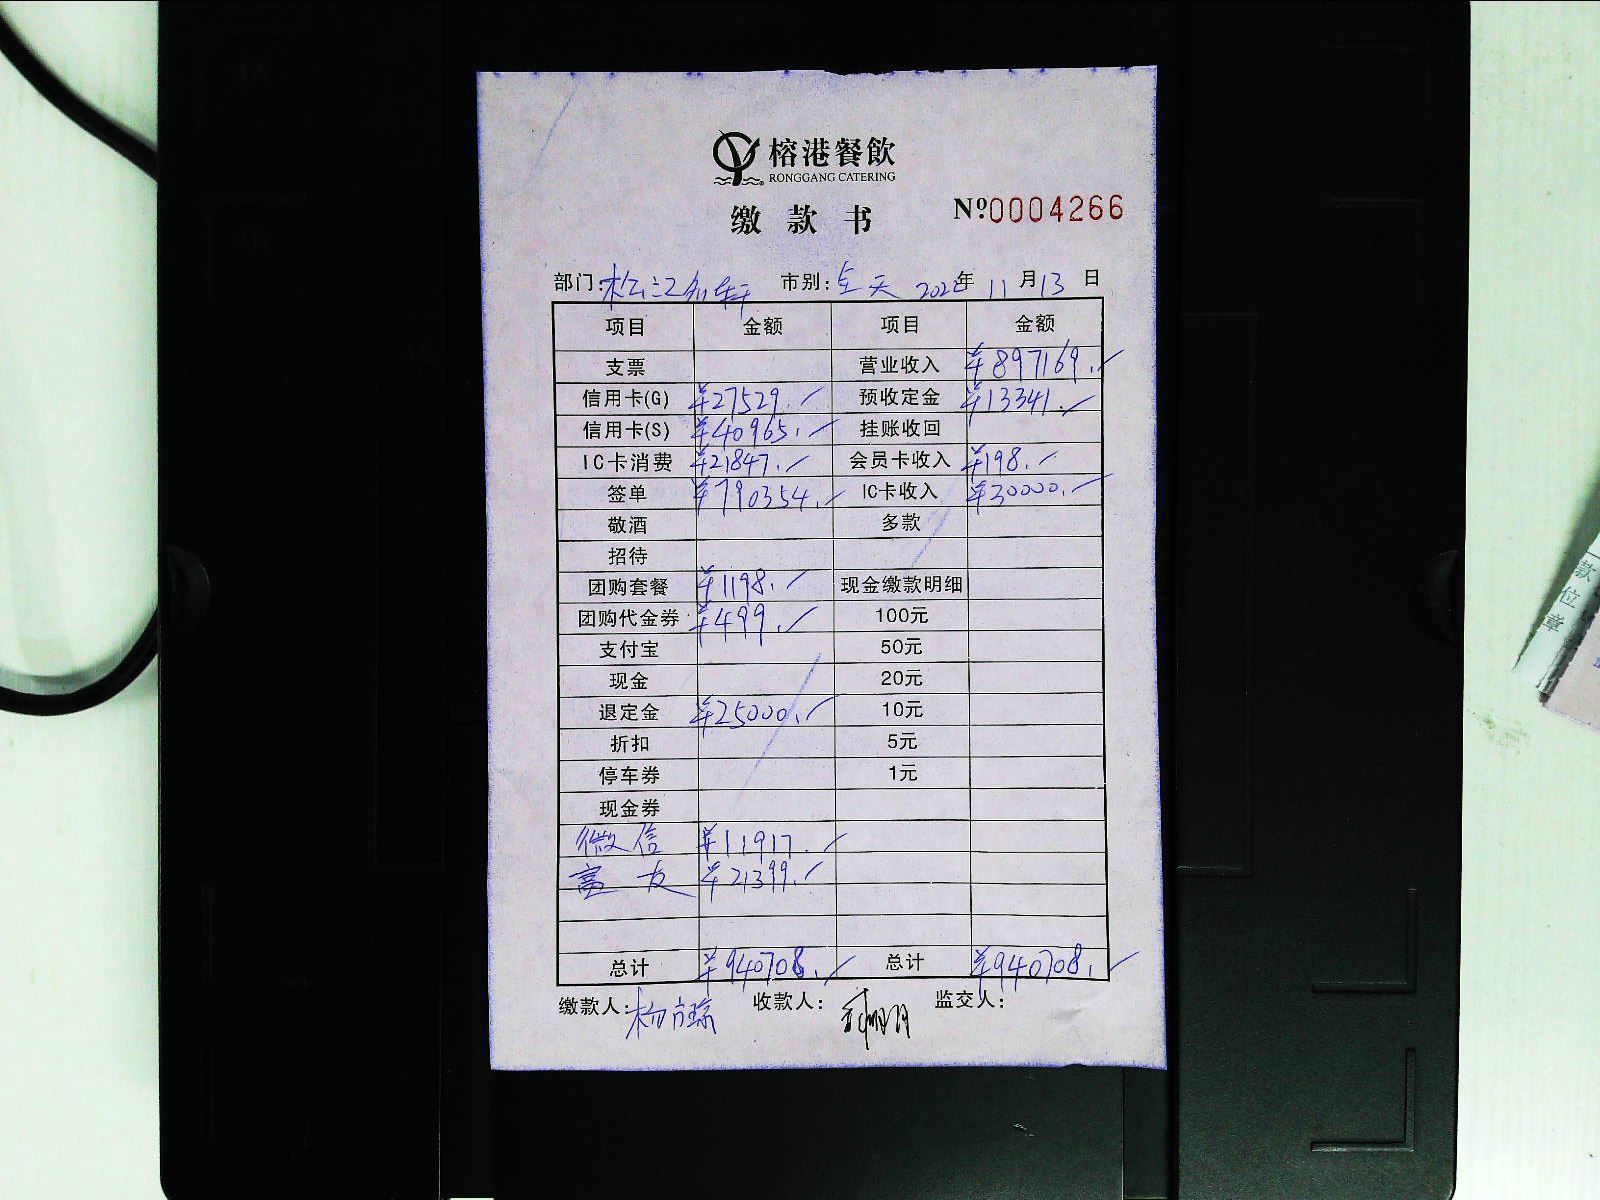 榕港餐飲
RONGGANG CATERING
缴款书 Nº0004266
部门: 松江 市别: 全天 2022年 11月13日
项目 金额 项目 金额
支票 营业收入 ¥897169.
信用卡(G) ¥27529. 预收定金 ¥13341.
信用卡(S) ¥40965. 挂账收回
IC卡消费 ¥21847. 会员卡收入 ¥198.
签单 ¥790354. IC卡收入 ¥30000.
敬酒 多款
招待
团购套餐 ¥1198. 现金缴款明细
团购代金券 ¥499. 100元
支付宝 50元
现金 20元
退定金 ¥25000. 10元
折扣 5元
停车券 1元
现金券
微信 ¥11917.
富友 ¥21399.
总计 ¥940708. 总计 ¥940708.
缴款人: 收款人: 监交人:
款
位
章